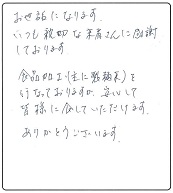 お世話になります。
いつも親切な業者さんに感謝
しております
食品加工(主に発酵業)を
行なっておりますが、安心して
皆様に食していただけます。
ありがとうございます。